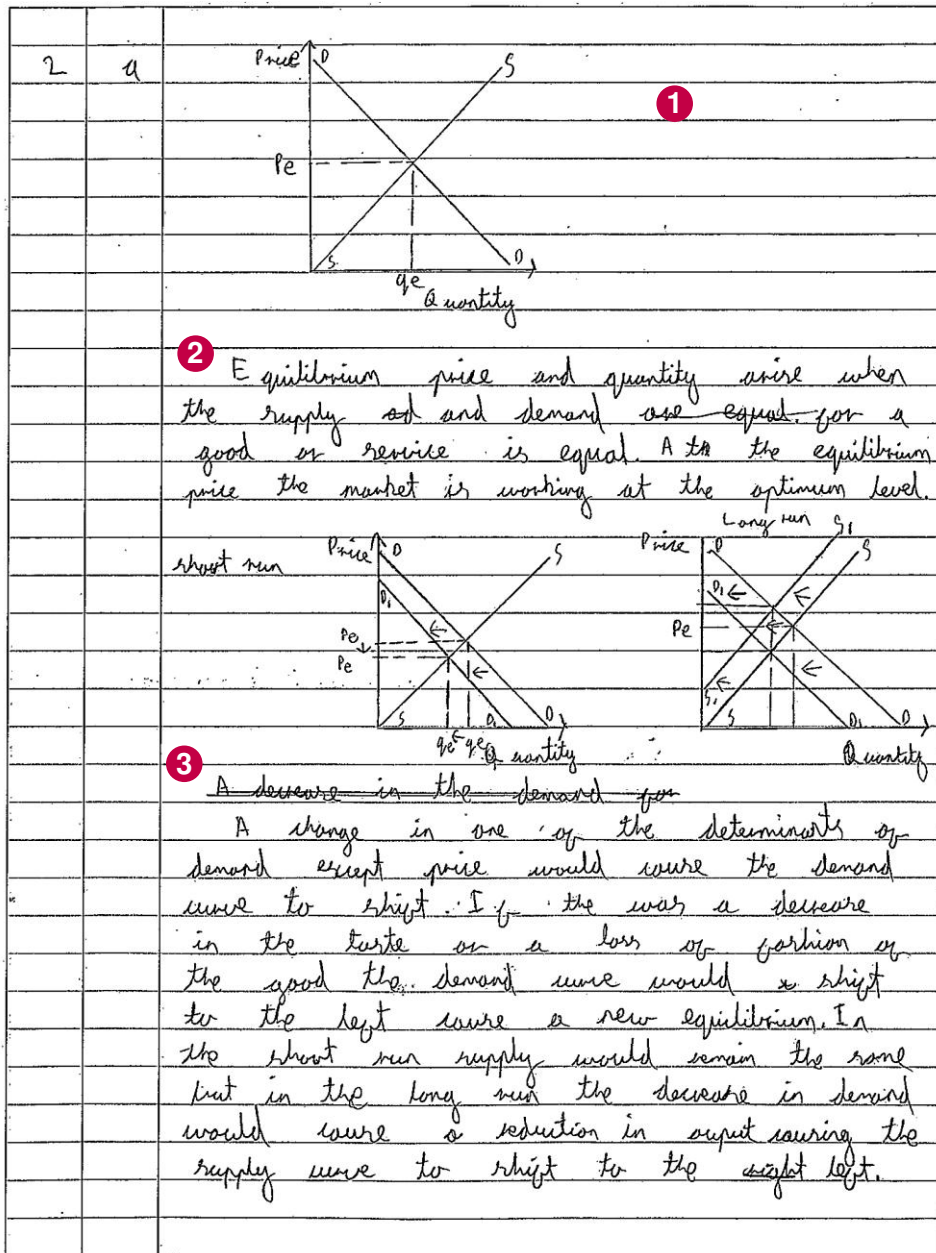 2 a
Price D S
1
Pe
S D
qe
Quantity
2
Equilibrium price and quantity arise when
the supply od and demand are equal. for a
good or service is equal. A tn the equilibrium
price the market is working at the optimum level.
short run Price D S
D1
Pe
Pe
S D1 D
qe qe Quantity
Long run
Price D S1 S
D1
Pe
S1 S D1 D
Quantity
3
A decrease in the demand for
A change in one of the determinants of
demand except price would cause the demand
curve to shift. If the was a decrease
in the taste or a loss of fashion of
the good the demand curve would shift
to the left cause a new equilibrium. In
the short run supply would remain the same
but in the long run the decrease in demand
would cause a reduction in ouput causing the
supply curve to shift to the right left.